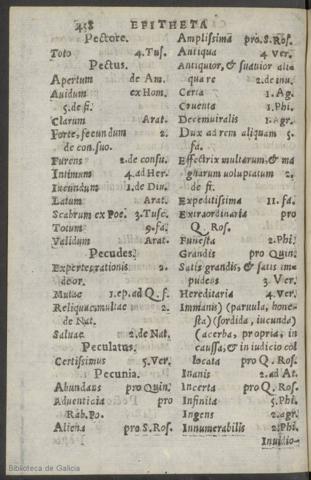 438 EPITHETA
Pectore.
Toto 4.Tus.
Pectus.
Apertum de Am.
Auidum ex Hom.
5.de fi.
Clarum Arat.
Forte, fœcundum 2.
de con.suo.
Furens 2.de consu.
Intimum 4.ad Her.
Iucundum 1.de Diu.
Latum Arat.
Scabrum ex Poe. 3.Tusc.
Totum 9.fa.
Validum Arat.
Pecudes.
Expertes rationis 2.
deor.
Mutæ 1.ep.ad Q.f.
Reliquæ multæ 2.
de Nat.
Saluæ 2.de Nat.
Peculatus.
Certissimus 5.Ver.
Pecunia.
Abundans pro Quin.
Aduenticia pro
Rab.Po.
Aliena pro S.Ros.
Amplissima pro.S.Ros.
Antiqua 4.Ver.
Antiquior, & suauior alia
qua re 2.de inu.
Certa 1.Ag.
Cruenta 1.Phi.
Decemuiralis 1.Agr.
Dux ad rem aliquam 5.
fa.
Effectrix multarum, & ma
gnarum uoluptatum 2.
de fi.
Expeditissima 11.fa.
Extraordinaria pro
Q. Ros.
Funesta 2.Phi.
Grandis pro Quin.
Satis grandis, & satis im=
pudens 3.Ver.
Hereditaria 4.Ver.
Immanis) (paruula, hone-
sta) (sordida, iucunda)
(acerba, propria, in
caussa, & in iudicio col
locata pro Q.Ros.
Inanis 2.ad At.
Incerta pro Q.Ros.
Infinita 5.Phi.
Ingens 2.agr.
Innumerabilis 2.Phi.
Inuidio-
Biblioteca de Galicia